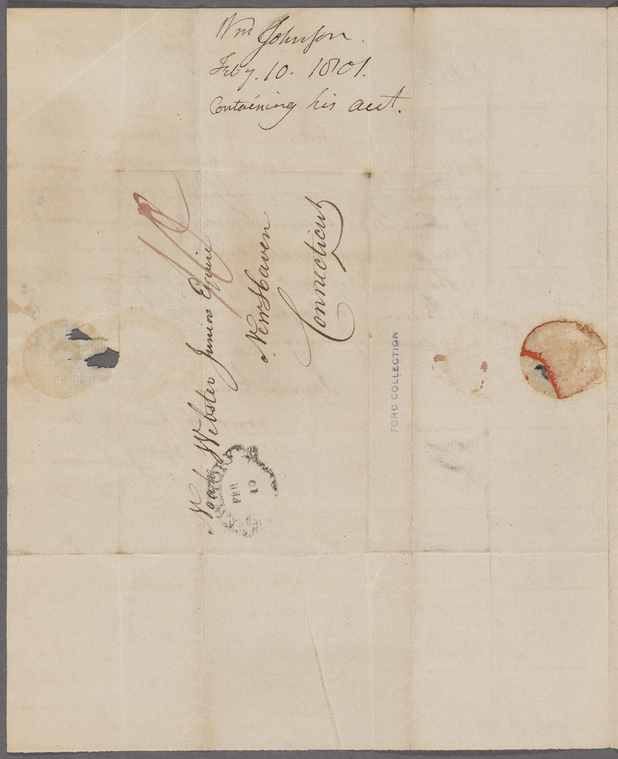 Wm Johnson.
Feby. 10. 1801.
Containing his acct.
Noah Webster Junior Esquire
New Haven
Connecticut
FEB
10
FORD COLLECTION